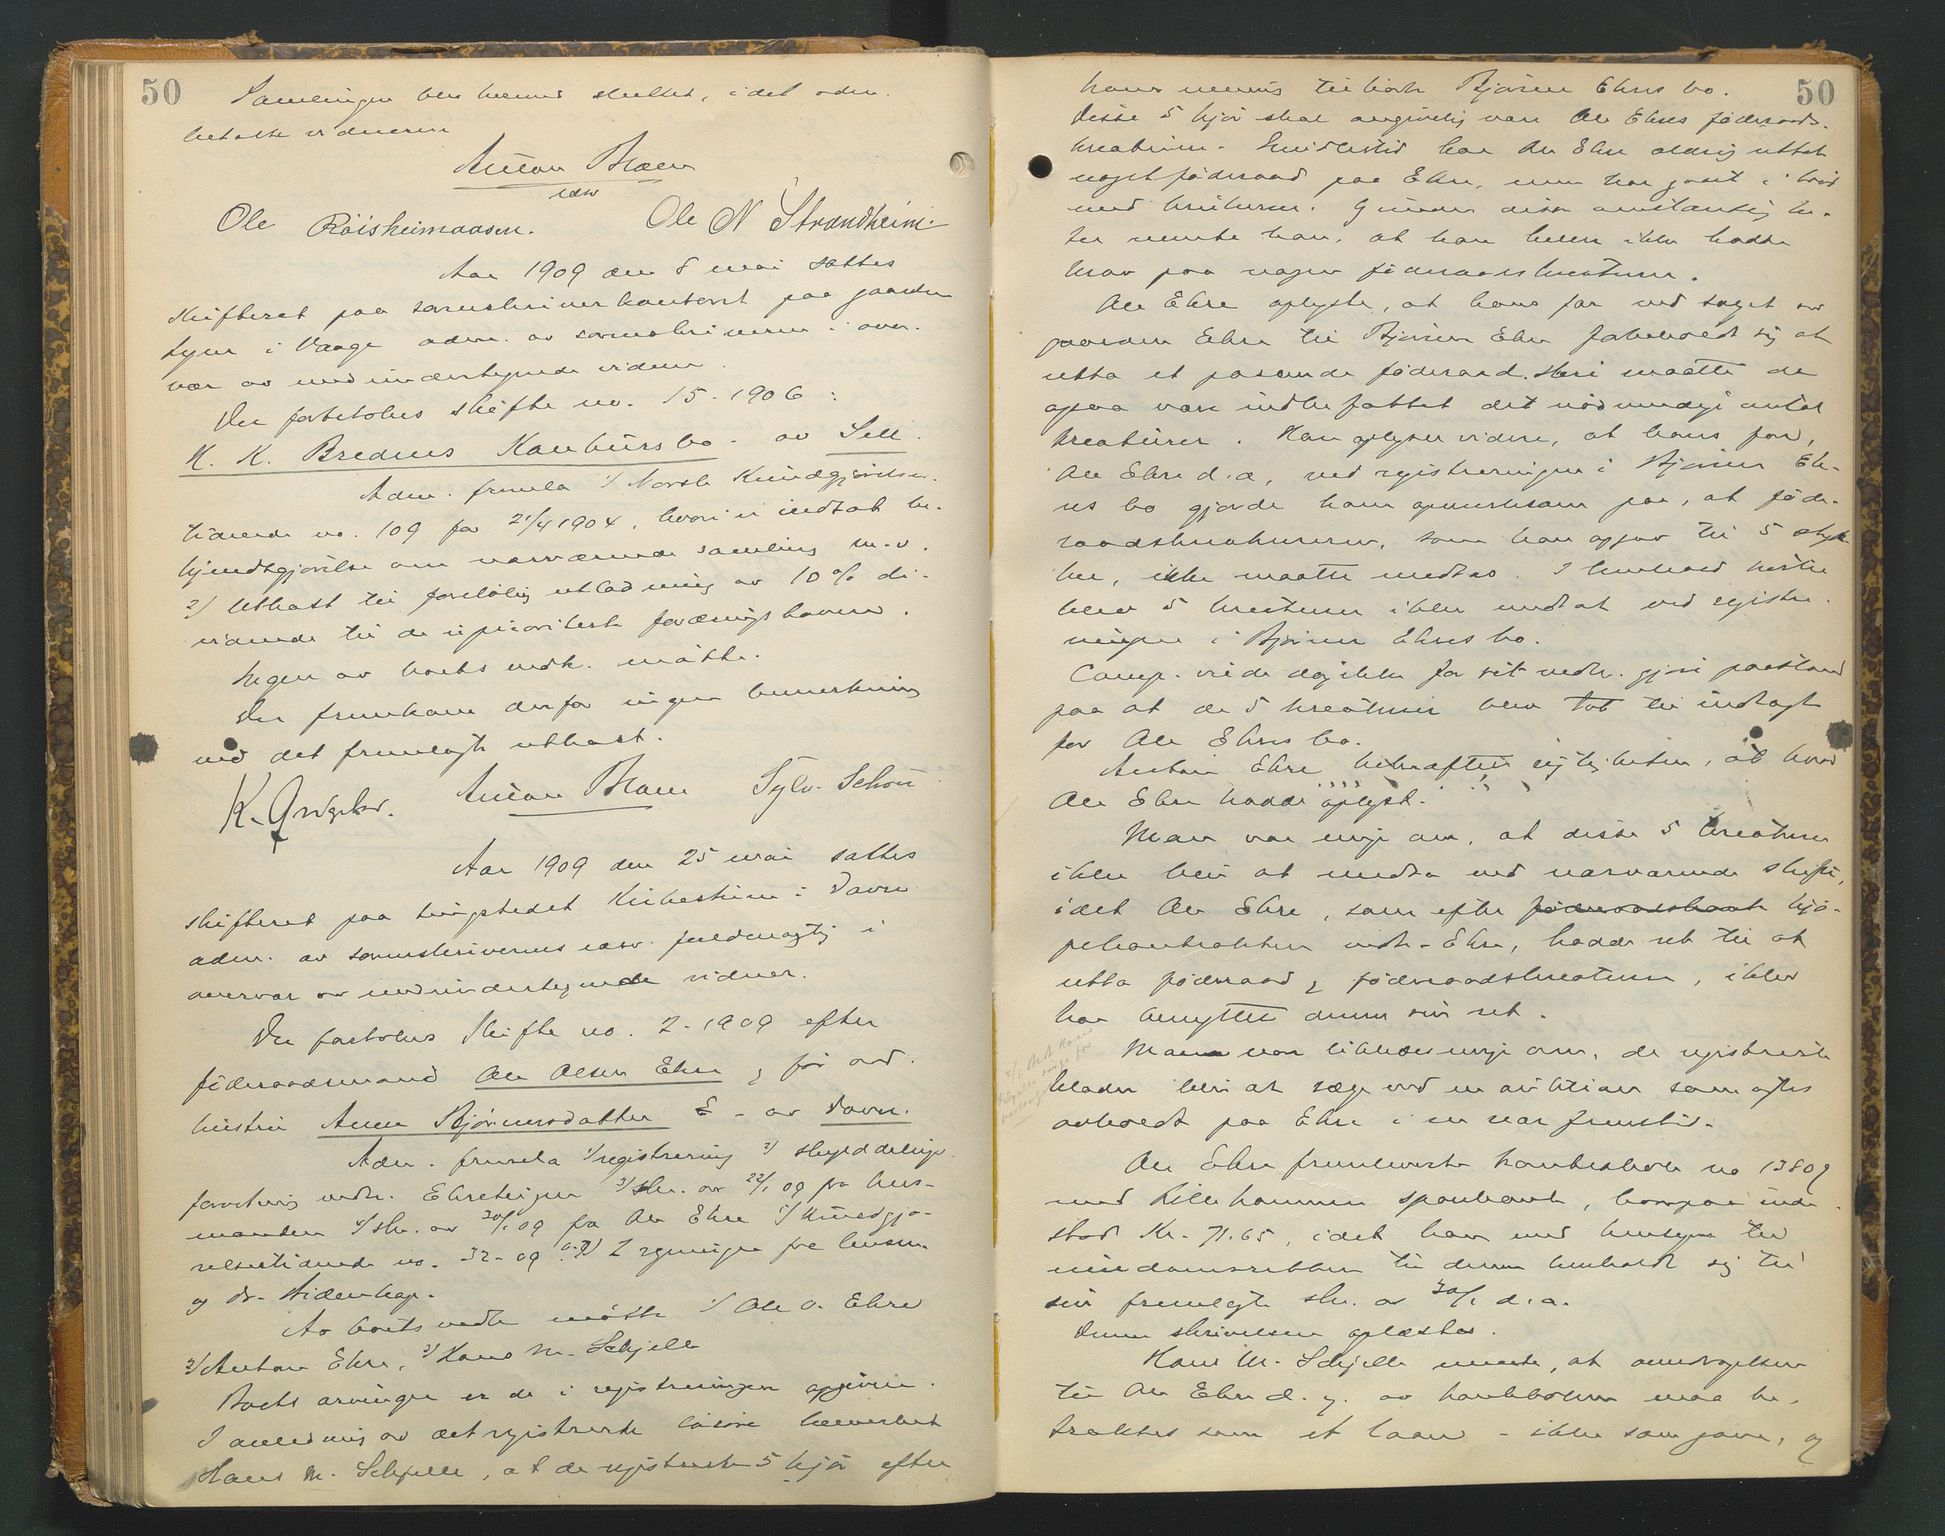 50
Samlingen blev hermed sluttet, idet adm.
betalte vidnerne
Anton Blom
csv
Ole Röisheimaasen. Ole N Strandheim.
Aar 1909 den 8 mai sattes
skifteret paa sorenskriverkontoret paa gaarden
i Vaage adm. av sorenskriveren i over-
vær av medundertegnede vidner.
Der foretokes skifte no. 15-1906:
K. K. Bredens Konkursbo - av Sell.
Adm. fremla 1/ Norsk Kundgjörelses-
tidende no. 109 for 21/4 1904, hvori er indtat be-
kjendtgjörelse om nærværende samling m.v.
2/ Utkast til foreløbig utlodning av 10 % di-
vidende til de uprioriterte fordringshavere.
Ingen av boets vedk. møtte.
Der fremkom derfor ingen bemerkning
ved det fremlagte utkast.
K. Anton Blom Sylv. Schou
Aar 1909 den 25 mai sattes
skifteret paa tingstedet Kirkestuen i Dovre
adm. av sorenskriverens edsv. fuldmægtig i
overvær av medundertegnede vidner.
Der foretokes skifte no. 2-1909 efter
føderaadsmand Ole Olsen Ekre og før avd.
hustru Anne Bjørnersdatter E - av Dovre.
Adm. fremla 1/ registrering 2/ skylddelings-
forretning vedk. Ekreteigen 3/ skr. av 22/1 09 fra lens-
manden 4/ skr. av 30/1 09 fra Ole Ekre 5/ Kundgjö-
relsestidende no. 32-09 6-7) 2 regninger fra lensm.
og dr.
Av boets vedk. møtte 1/ Ole O. Ekre
2/ Anton Ekre, 3/ Hans M. Schjelle
Boets arvinger er de i registreringen opgivne.
I anledning av det registrerte løsøre bemerket
Hans M. Schjelle, at de registrerte 5 kjør efter
50
hans mening tilhørte Bjørner Ekres bo.
Disse 5 kjør skal angivelig være Ole Ekres føderaads-
kreaturer. Imidlertid har Ole Ekre aldrig uttat
noget føderaad paa Ekre, men har gaat i brød
med brukeren. Grundet disse omstændighe-
ter mente han, at han heller ikke hadde
krav paa nogen føderaadskreaturer.
Ole Ekre oplyste, at hans far ved salget av
gaarden Ekre til Bjørner Ekre forbeholdt sig at
utta et passende føderaad. Heri maatte da
ogsaa være indbefattet det nødvendige antal
kreaturer. Han oplyser videre, at hans far,
Ole Ekre d.æ, ved registreringen i Bjørner Ek-
res bo gjorde ham opmerksom paa, at føde-
raadskreaturerne, som han opgav til 5 styk-
ker, ikke maatte medtas. I henhold hertil
blev 5 kreaturer ikke medtat ved registre-
ringen i Bjørner Ekres bo.
Comp. vilde dog ikke for sit vedk. gjøre paastand
paa at de 5 kreaturer blev tat til indtægt
for Ole Ekres bo.
Anton Ekre bekræftet rigtigheten, at hvad
Ole Ekre hadde oplyst.
Man var enige om, at disse 5 kreaturer
ikke blir at medta ved nærværende skifte,
idet Ole Ekre, som efter føderaadskont kjø-
pekontrakten vedk. Ekre, hadde ret til at
utta føderaad og føderaadskreaturer, ikke
har benyttet denne sin ret.
Man var likeledes enige om, de registrerte
klæder blir at sælge ved en auktion som agtes
avholdt paa Ekre i en nær fremtid.
Ole Ekre fremleverte bankbok no 13809
med Lillehammer sparebank, hvorpaa inde-
stod Kr. 71.65, idet han med hensyn til
eiendomsretten til denne henholdt sig til
sin fremlagte skr. av 30/1 d.a.
Denne skrivelsen oplæstes.
Hans M. Schjelle mente, at overdragelsen
til Ole Ekre d.y. av bankboken maa be-
traktes som et laan - ikke som gave, og